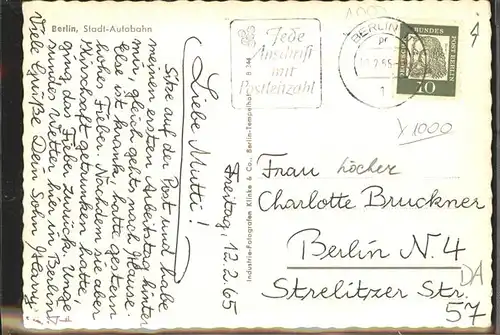 Berlin, Stadt-Autobahn
Freitag, 12.2.65
Liebe Mutti!
Sitze auf der Post und habe
meinen ersten Arbeitstag hinter
mir, gleich geht's nach Hause.
Else ist krank, hatte gestern
hohes Fieber. Nachdem sie aber
getrunken hatte,
ging das Fieber zurück. Unge
sundes Wetter hier in Berlin.
Viele Grüße Dein Sohn Harry.
B 744
Industrie-Fotografen Klinke & Co., Berlin-Tempelhof
Jede
Anschrift
mit
Postleitzahl
BERLIN
2.65
1
DEUTSCHE BUNDESPOST BERLIN
10
1000
Y1000
Frau Löcher
Charlotte Bruckner
Berlin N. 4
Strelitzer Str.
57
DA